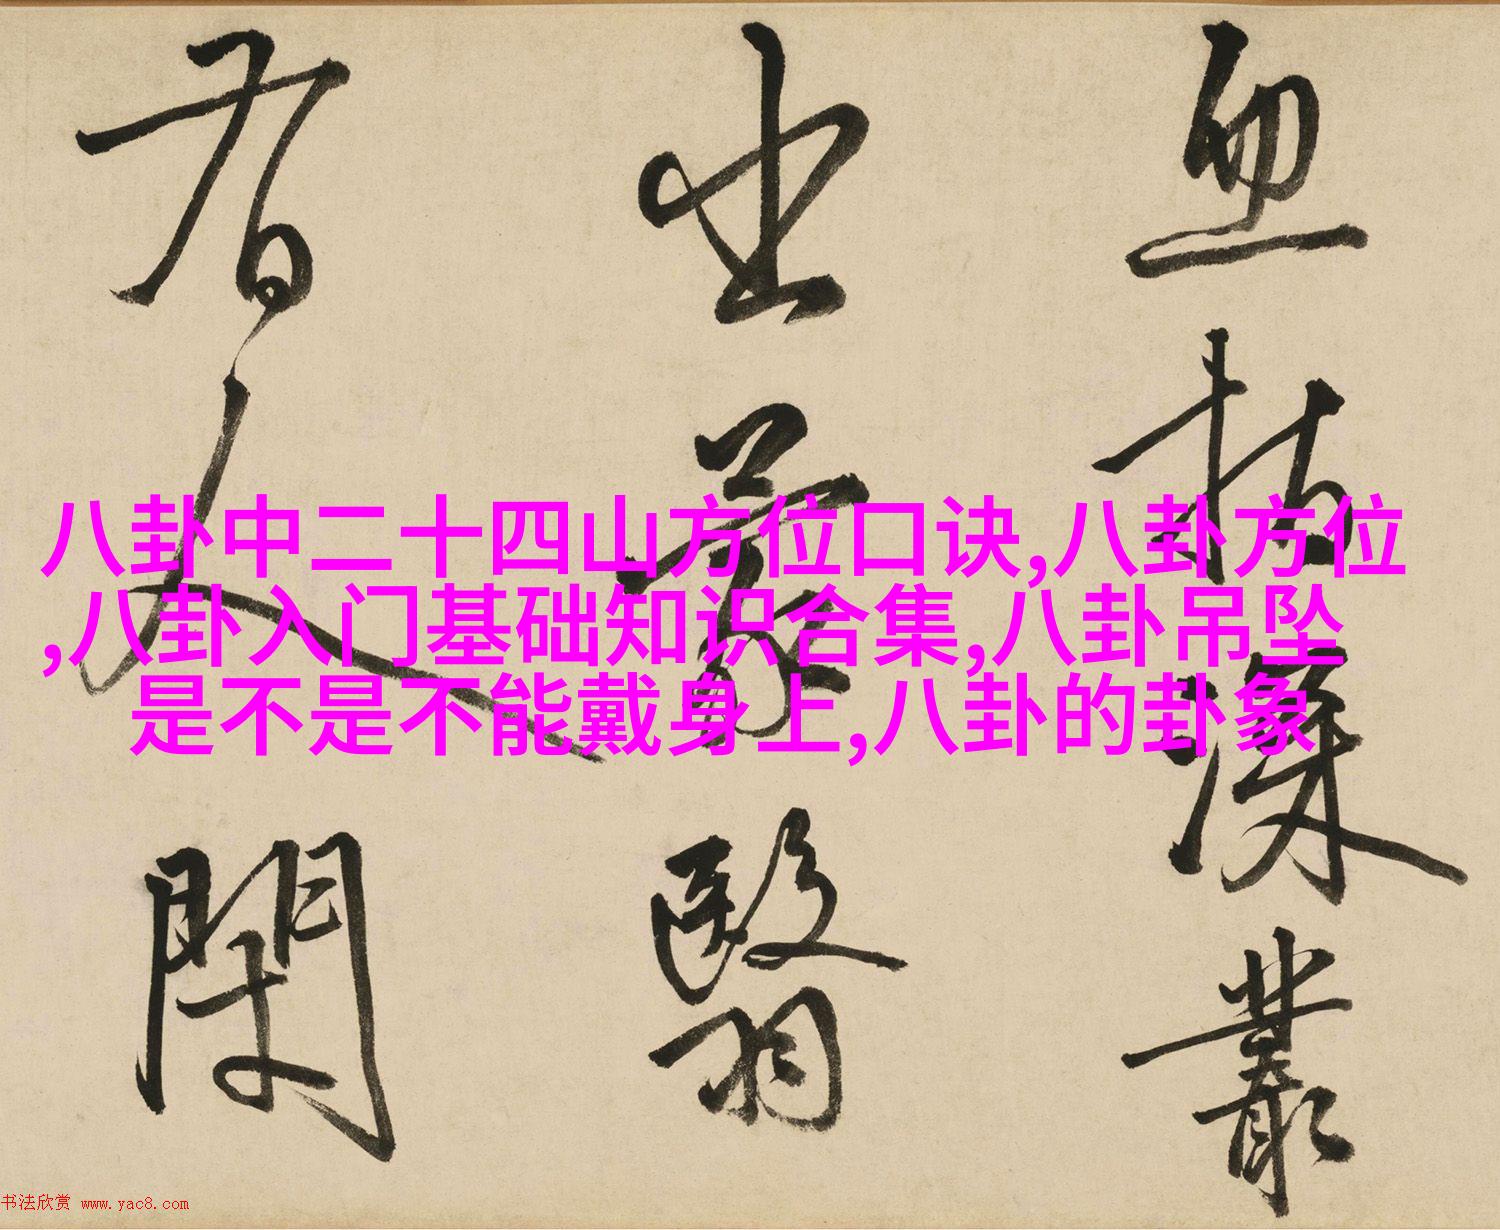 深叢
出蒙翳
人
八卦中二十四山方位口诀,八卦方位
,八卦入门基础知识合集,八卦吊坠
是不是不能戴身上,八卦的卦象
书法欣赏 www.yac8.com